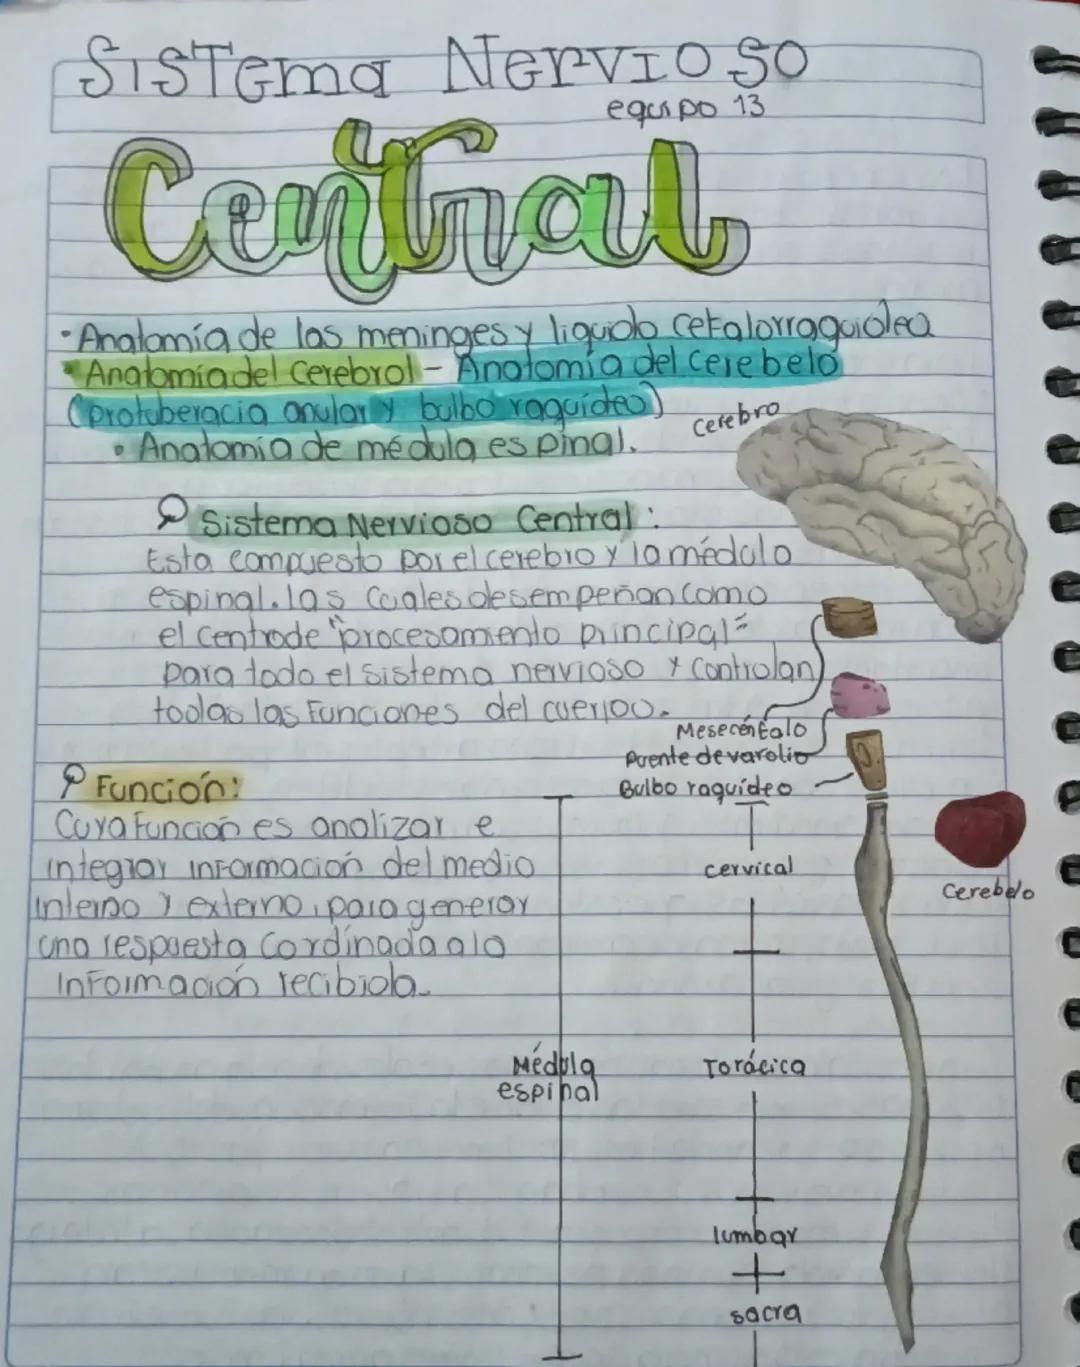 Sistema Nervioso
equipo 13
Central
• Anatomía de las meninges y liquido cefalorraquidea
• Anatomia del Cerebrol - Anatomia del cerebelo
(protuberacia anular y bulbo raquídeo)
• Anatomía de médula espinal.
cerebro
Sistema Nervioso Central:
Esta compuesto por el cerebro y la médula
espinal. las cuales desempeñan como
el centro de "procesamiento principal"
para todo el sistema nervioso y controlan
todas las Funciones del cuerpo.
Mesecéntalo
Puente de varolio
Bulbo raquídeo
Función:
Cuya Función es analizar e
integrar información del medio
interno y externo, para generar
una respuesta Cordinada a la
Información recibida.
cervical
Cerebelo
Médula
espinal
Torácica
lumbar
sacra